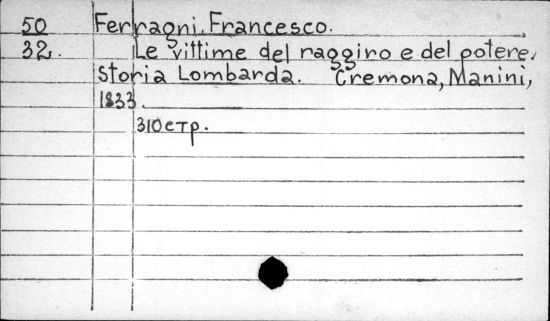 50 Ferragni, Francesco.
32. Le vittime del raggiro e del potere.
Storia Lombarda. Cremona, Manini,
1833.
310 стр.